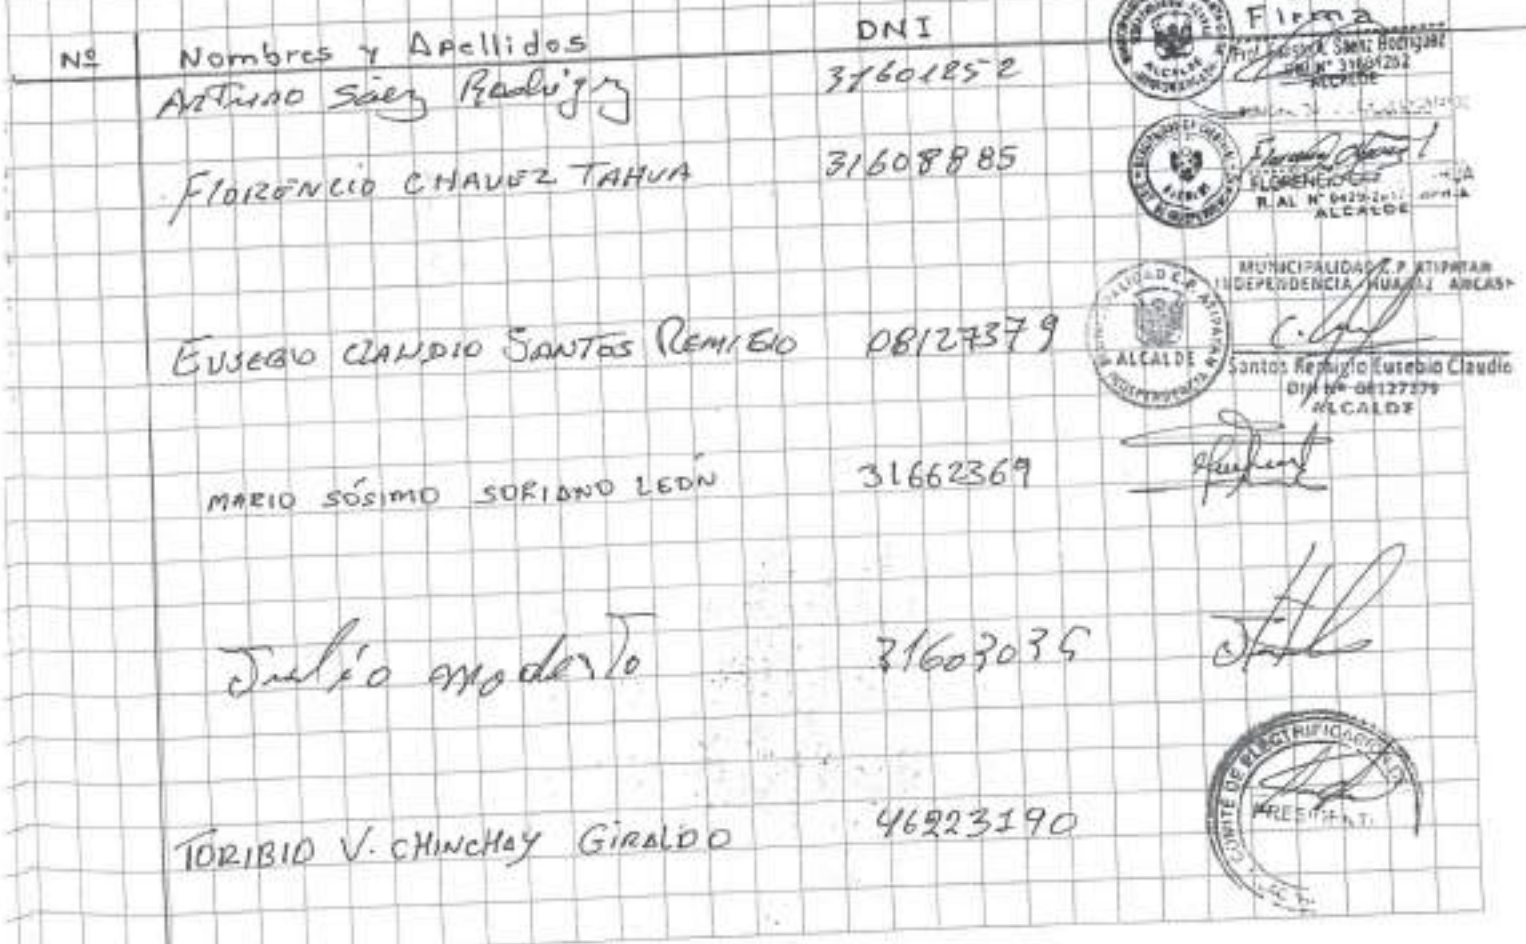 Nº Nombres y Apellidos DNI Firma
Arturo Sáez Rodrígz 31601252
ALCALDE
Sáenz Rodriguez
ALCALDE
FLORENCIO CHAVEZ TAHUA 31608885
FLORENCIO
ALCALDE
EUSEBIO CLAUDIO SANTOS REMIGIO 08127379
MUNICIPALIDAD C.P. ATIPAYAN
INDEPENDENCIA HUARAZ ANCASH
ALCALDE
Santos Remigio Eusebio Claudio
DNI Nº 08127379
ALCALDE
MARIO SÓSIMO SORIANO LEÓN 31662369
Julio Modesto 31603035
TORIBIO V. CHINCHAY GIRALDO 46223190
COMITÉ DE ELECTRIFICACIÓN
PRESIDENTE